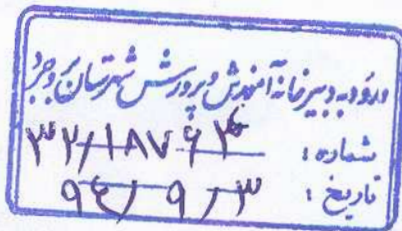 ورود به دبیرخانه آموزش و پرورش شهرستان بروجرد
شماره : ۳۲/۱۸۷۶۴
تاریخ : ۹۴/۹/۳